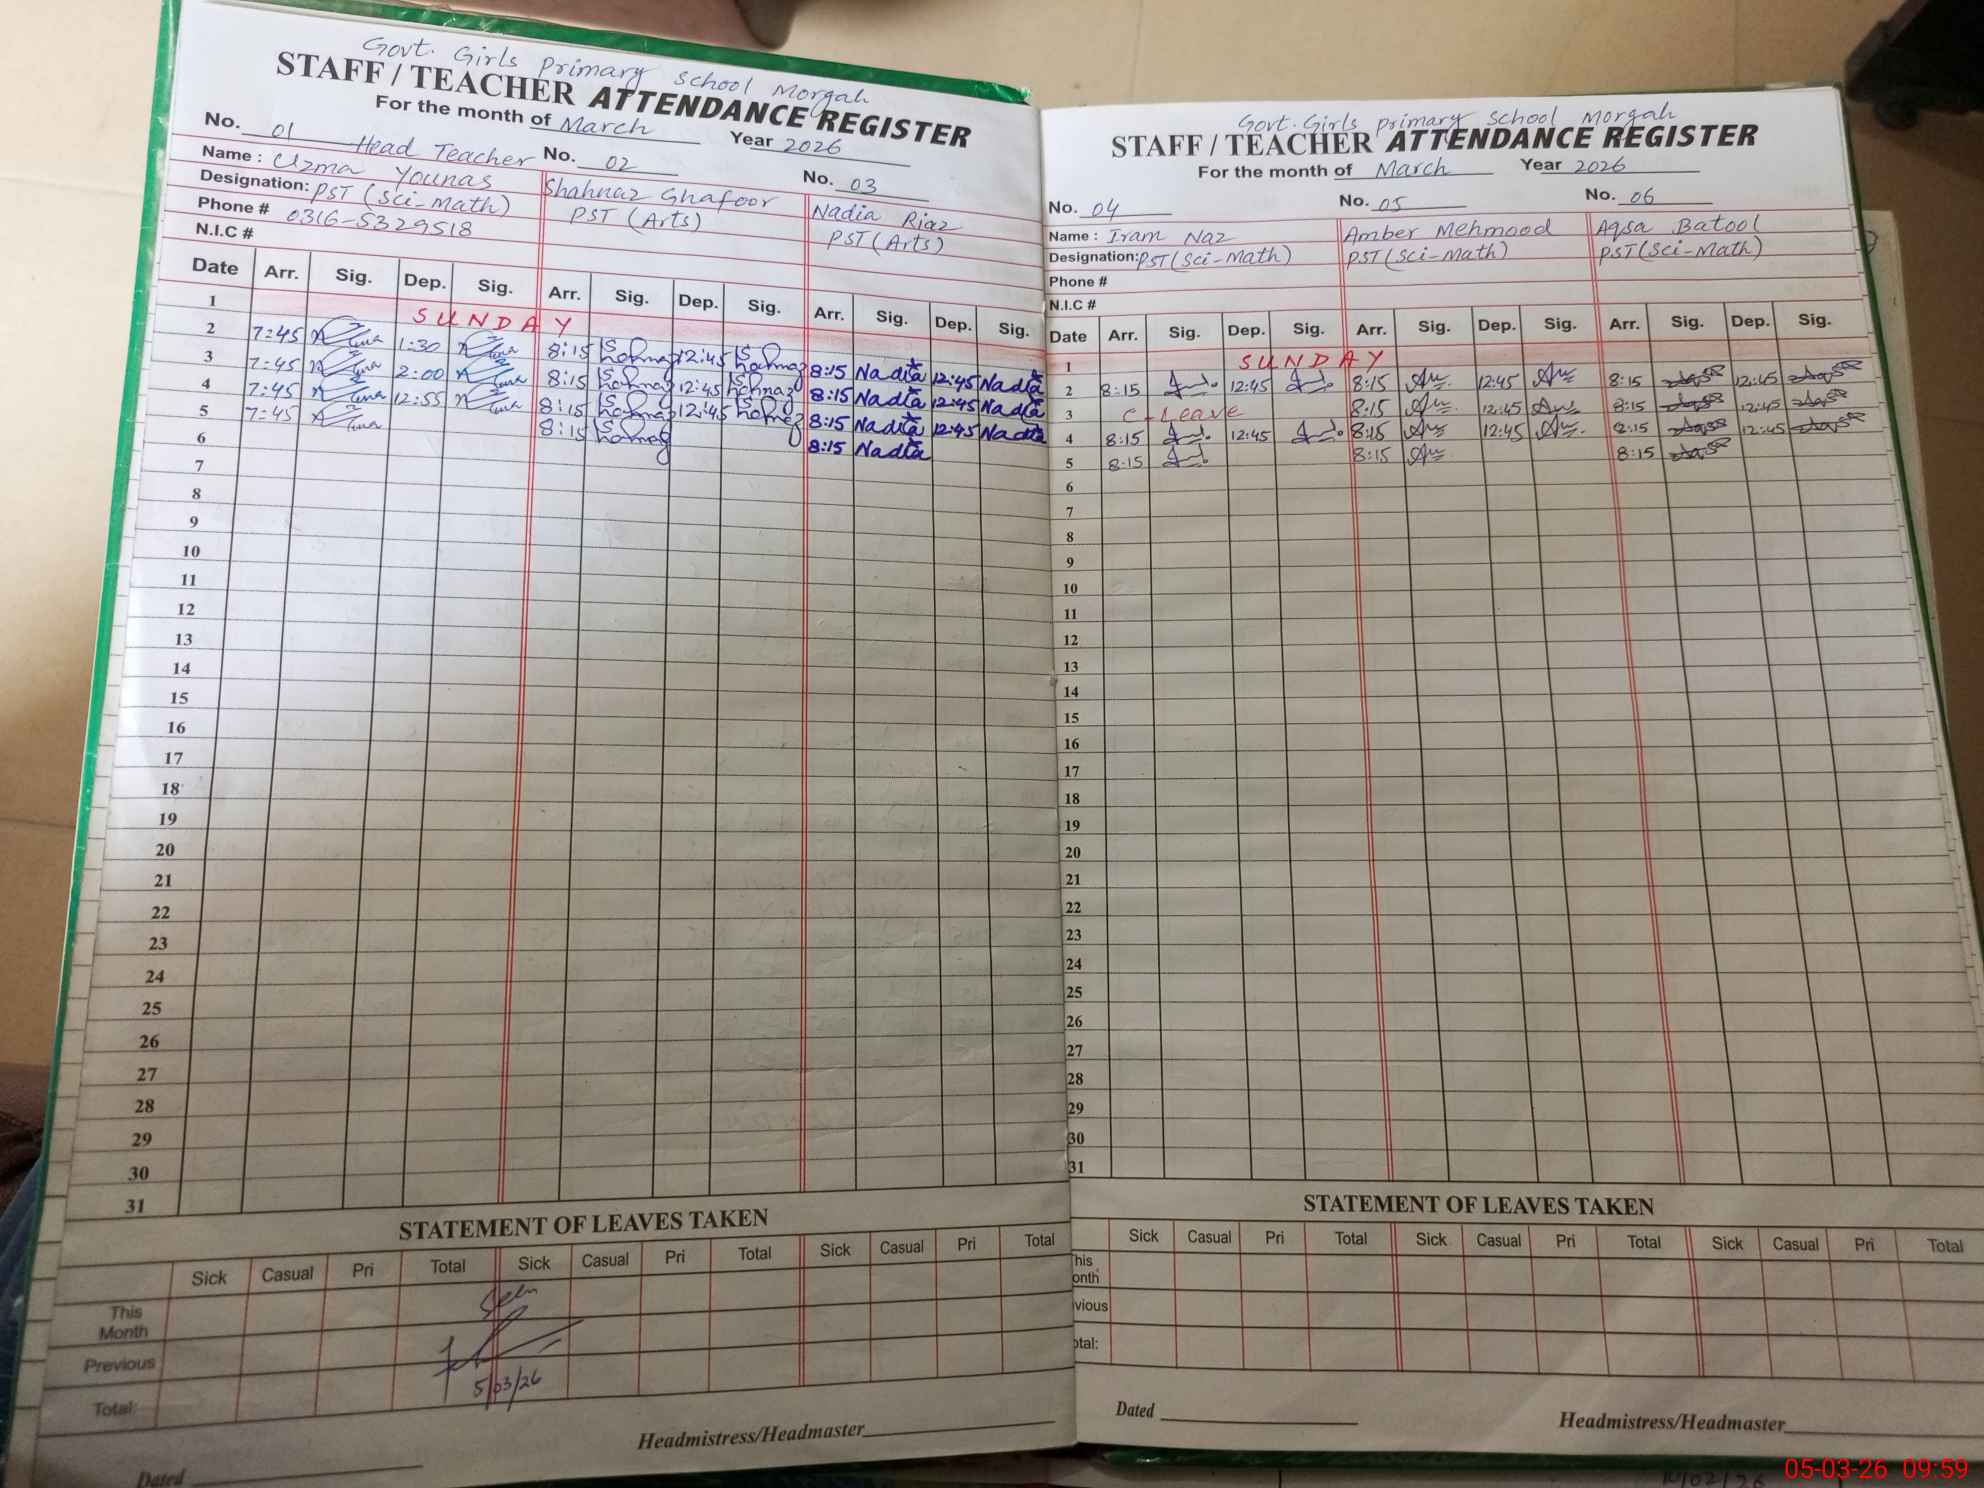 Govt. Girls Primary School Morgah
STAFF / TEACHER ATTENDANCE REGISTER
For the month of March Year 2026
No. 01 Head Teacher No. 02 No. 03
Name : Uzma Younas Shahnaz Ghafoor Nadia Riaz
Designation: PST (Sci-Math) PST (Arts) PST (Arts)
Phone # 0316-5329518
N.I.C #
Date Arr. Sig. Dep. Sig. Arr. Sig. Dep. Sig. Arr. Sig. Dep. Sig.
1 SUNDAY
2 7:45 1:30 8:15 Shahnaz 12:45 Shahnaz 8:15 Nadia 12:45 Nadia
3 7:45 2:00 8:15 Shahnaz 12:45 Shahnaz 8:15 Nadia 12:45 Nadia
4 7:45 12:55 8:15 Shahnaz 12:45 Shahnaz 8:15 Nadia 12:45 Nadia
5 7:45 8:15 Shahnaz 8:15 Nadia
6
7
8
9
10
11
12
13
14
15
16
17
18
19
20
21
22
23
24
25
26
27
28
29
30
31
STATEMENT OF LEAVES TAKEN
Sick Casual Pri Total Sick Casual Pri Total Sick Casual Pri Total
This Month
Previous
Total:
Seen
5/03/26
Headmistress/Headmaster
Dated
Govt. Girls Primary School Morgah
STAFF / TEACHER ATTENDANCE REGISTER
For the month of March Year 2026
No. 04 No. 05 No. 06
Name : Iram Naz Amber Mehmood Aqsa Batool
Designation: PST (Sci-Math) PST (Sci-Math) PST (Sci-Math)
Phone #
N.I.C #
Date Arr. Sig. Dep. Sig. Arr. Sig. Dep. Sig. Arr. Sig. Dep. Sig.
1 SUNDAY
2 8:15 12:45 8:15 12:45 8:15 12:45
3 C-Leave 8:15 12:45 8:15 12:45
4 8:15 12:45 8:15 12:45 8:15 12:45
5 8:15 8:15 8:15
6
7
8
9
10
11
12
13
14
15
16
17
18
19
20
21
22
23
24
25
26
27
28
29
30
31
STATEMENT OF LEAVES TAKEN
Sick Casual Pri Total Sick Casual Pri Total Sick Casual Pri Total
his
onth
vious
otal:
Dated
Headmistress/Headmaster
05-03-26 09:59